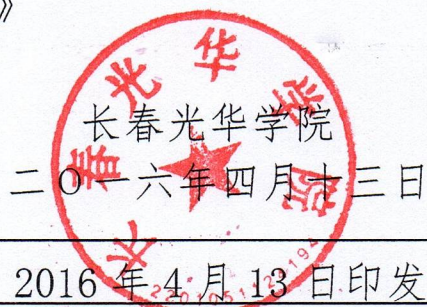 》
长春光华学院
二〇一六年四月十三日
2016年4月13日印发
长春光华学院